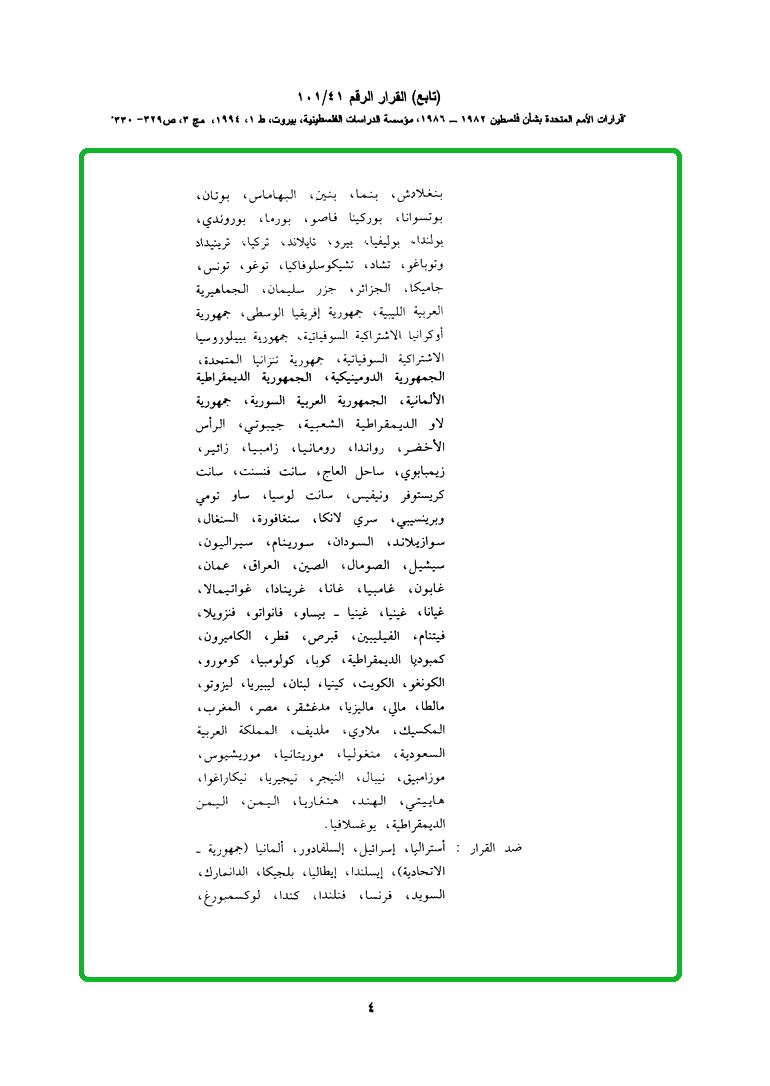 (تابع) القرار الرقم ١٠١/٤١
"قرارات الأمم المتحدة بشأن فلسطين ١٩٨٢ ــ ١٩٨٦، مؤسسة الدراسات الفلسطينية، بيروت، ط ١، ١٩٩٤، مج ٣، ص٣٢٩- ٣٣٠"
بنغلادش، بنما، بنين، البهاماس، بوتان،
بوتسوانا، بوركينا فاصو، بورما، بوروندي،
بولندا، بوليفيا، بيرو، تايلاند، تركيا، ترينيداد
وتوباغو، تشاد، تشيكوسلوفاكيا، توغو، تونس،
جاميكا، الجزائر، جزر سليمان، الجماهيرية
العربية الليبية، جمهورية إفريقيا الوسطى، جمهورية
أوكرانيا الاشتراكية السوفياتية، جمهورية بييلوروسيا
الاشتراكية السوفياتية، جمهورية تنزانيا المتحدة،
الجمهورية الدومينيكية، الجمهورية الديمقراطية
الألمانية، الجمهورية العربية السورية، جمهورية
لاو الديمقراطية الشعبية، جيبوتي، الرأس
الأخضر، رواندا، رومانيا، زامبيا، زائير،
زيمبابوي، ساحل العاج، سانت فنسنت، سانت
كريستوفر ونيفيس، سانت لوسيا، ساو تومي
وبرينسيبي، سري لانكا، سنغافورة، السنغال،
سوازيلاند، السودان، سورينام، سيراليون،
سيشيل، الصومال، الصين، العراق، عمان،
غابون، غامبيا، غانا، غرينادا، غواتيمالا،
غيانا، غينيا، غينيا ـ بيساو، فانواتو، فنزويلا،
فيتنام، الفيليبين، قبرص، قطر، الكاميرون،
كمبوديا الديمقراطية، كوبا، كولومبيا، كومورو،
الكونغو، الكويت، كينيا، لبنان، ليبيريا، ليزوتو،
مالطا، مالي، ماليزيا، مدغشقر، مصر، المغرب،
المكسيك، ملاوي، ملديف، المملكة العربية
السعودية، منغوليا، موريتانيا، موريشيوس،
موزامبيق، نيبال، النيجر، نيجيريا، نيكاراغوا،
هاييتي، الهند، هنغاريا، اليمن، اليمن
الديمقراطية، يوغسلافيا.
ضد القرار : أستراليا، إسرائيل، إلسلفادور، ألمانيا (جمهورية ـ
الاتحادية)، إيسلندا، إيطاليا، بلجيكا، الدانمارك،
السويد، فرنسا، فنلندا، كندا، لوكسمبورغ،
٤